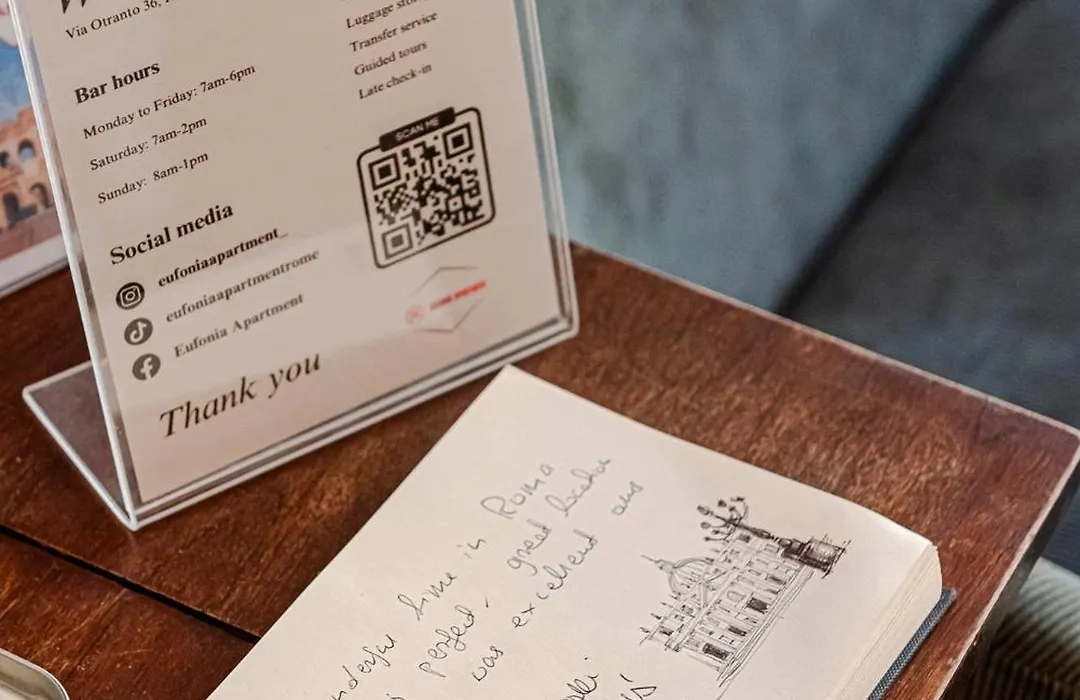 Via Otranto 36,
Bar hours
Monday to Friday: 7am-6pm
Saturday: 7am-2pm
Sunday: 8am-1pm
Social media
eufoniaapartment_
eufoniaapartmentrome
Eufonia Apartment
Thank you
Luggage
Transfer service
Guided tours
Late check-in
SCAN ME
time in Roma
perfect. great location
was excelent and